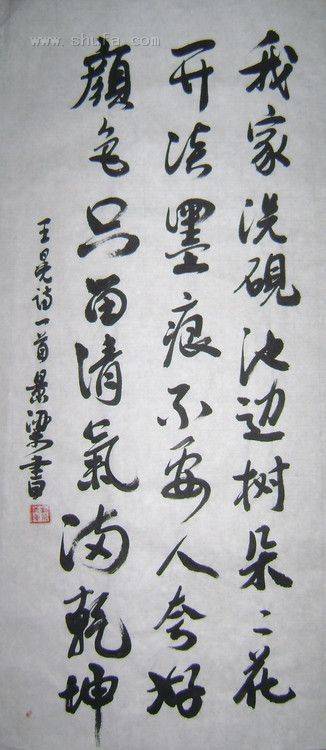 www.shufa.com
我家洗硯池边树朵〻花
开淡墨痕不要人夸好
顏色只留清氣满乾坤
王冕诗一首景梁書